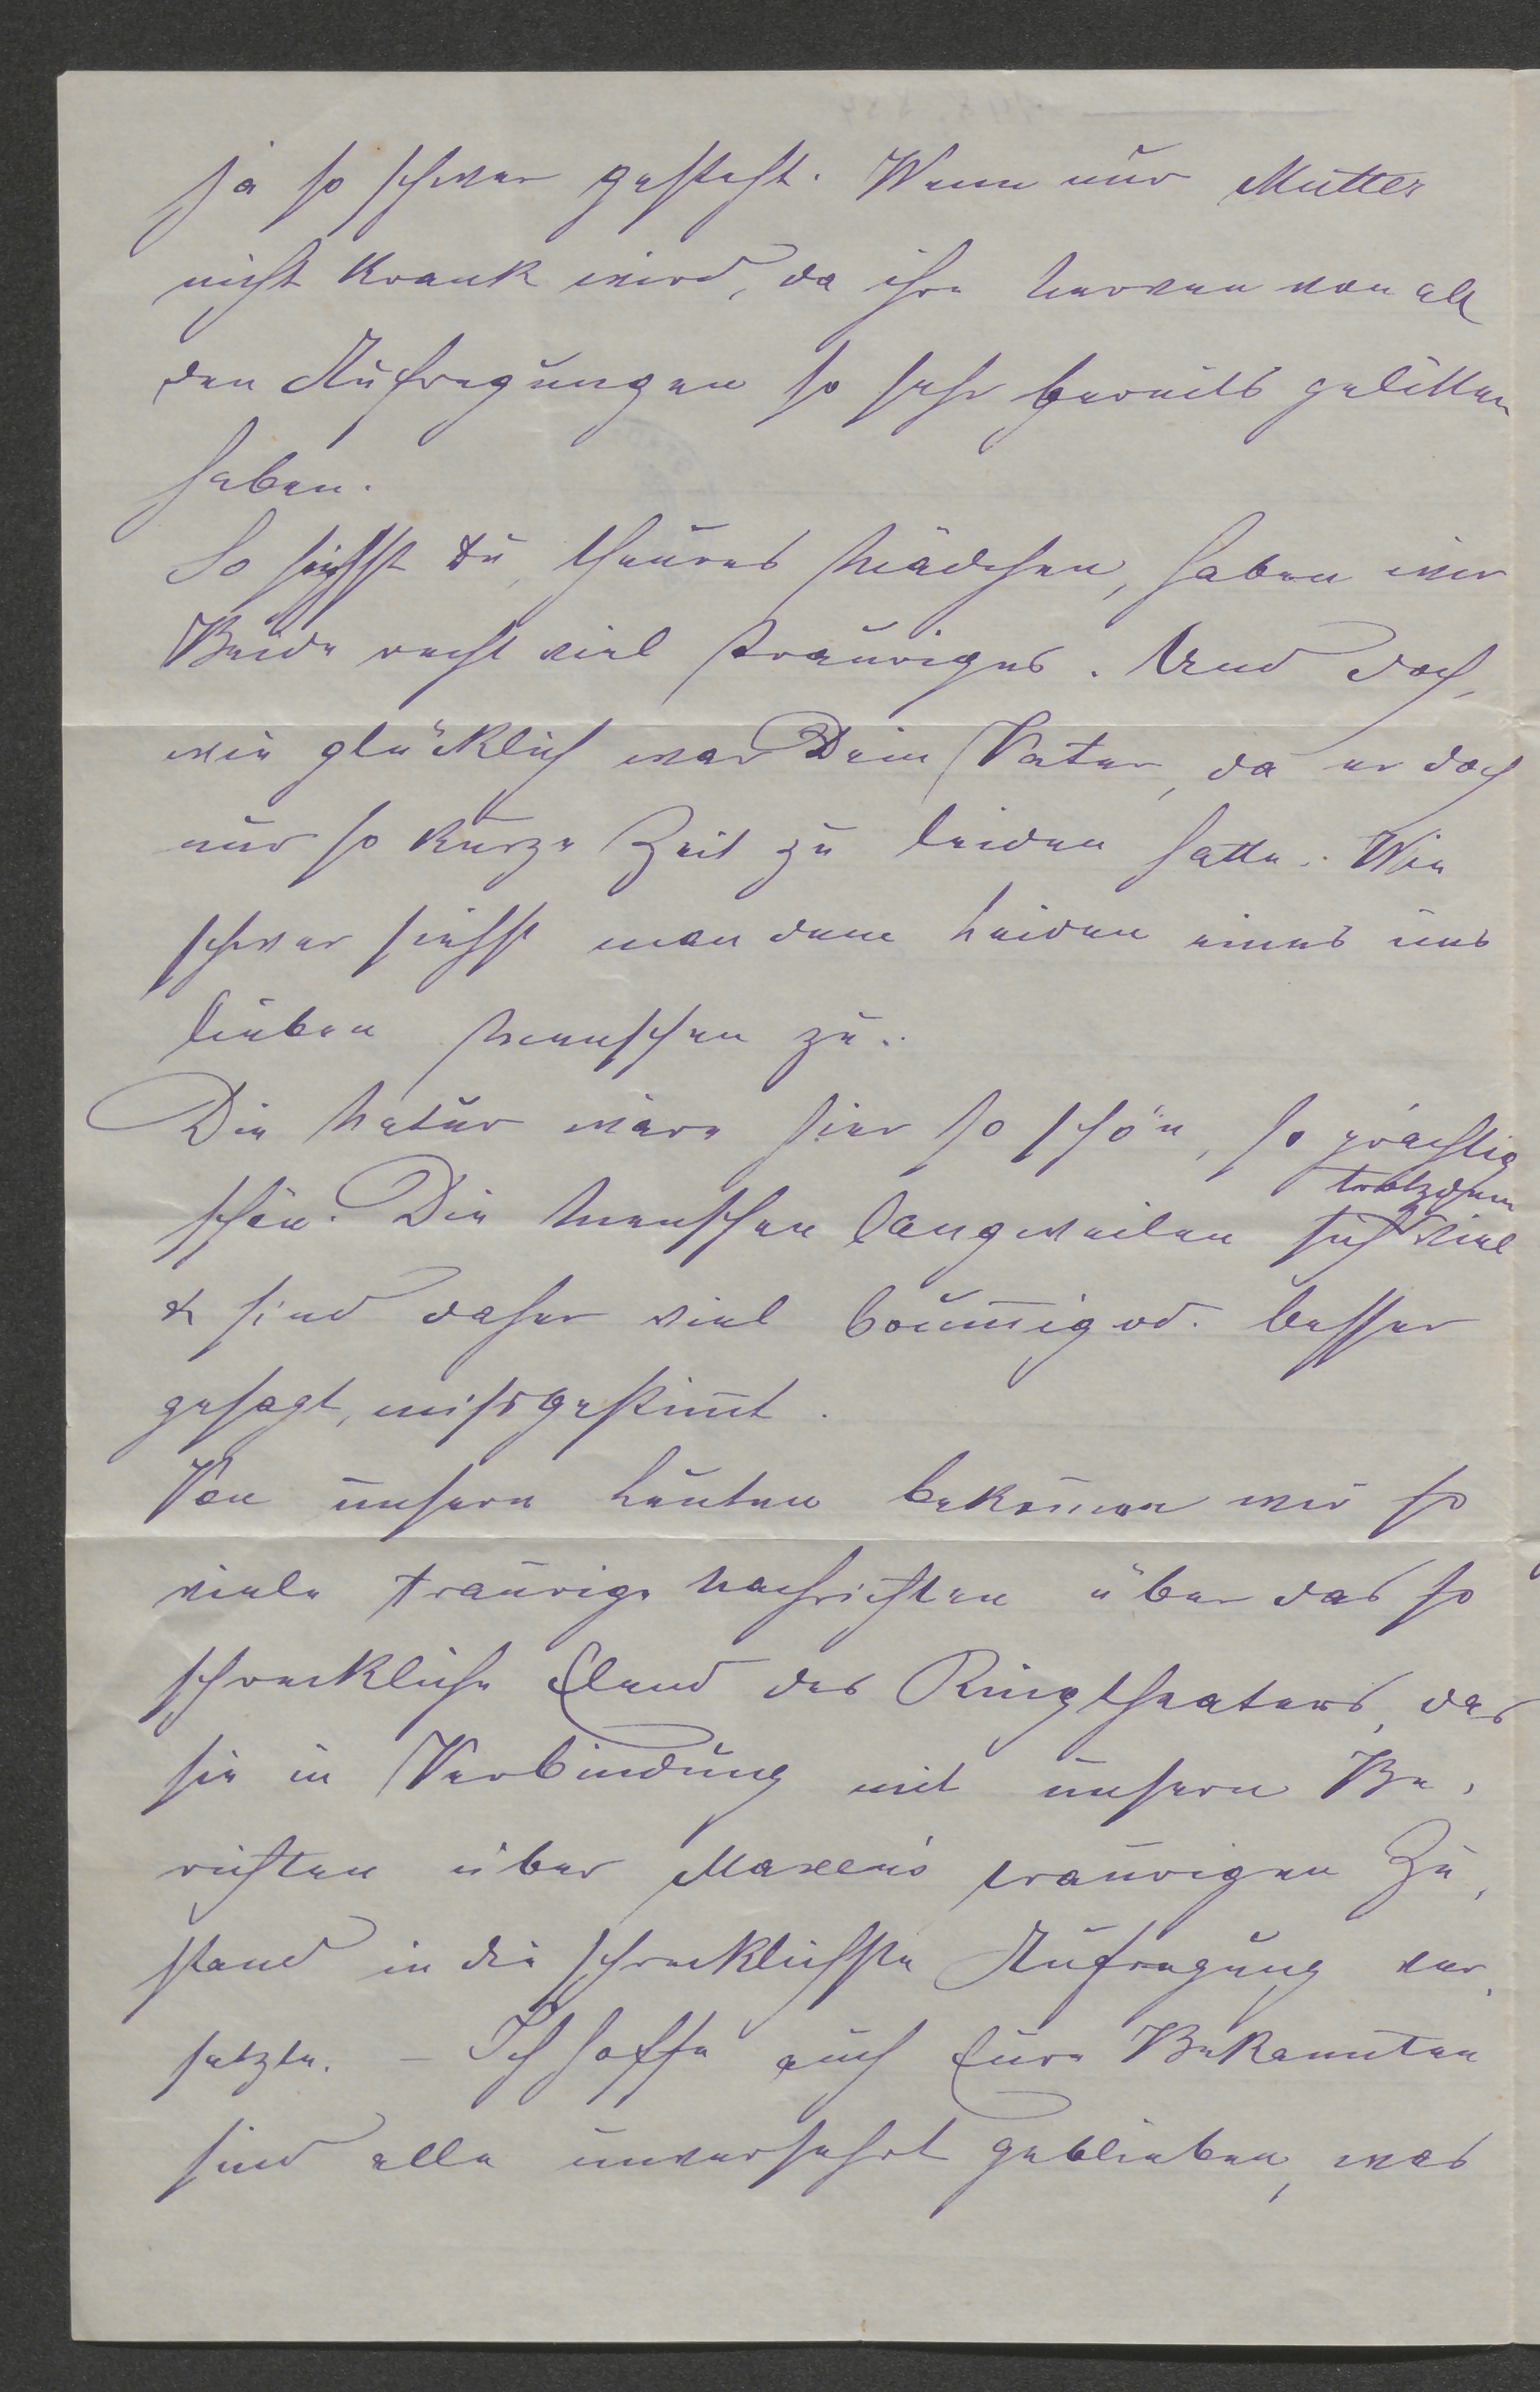 ja so schwer gesteht. Wenn nur Mutter
nicht krank wird, da ihre Nerven von all
den Aufregungen so sehr bereits gelitten
haben.
So siehst Du, theures Mädchen, haben wir
Beide recht viel trauriges. Und doch,
wie glücklich war Dein Vater, da er doch
nur so kurze Zeit zu leiden hatte. Wie
schwer sieht man dem Leiden eines uns
lieben Menschen zu.
Die Natur wäre hier so schön, so prächtig
trotzdem
schön. Die Menschen langweilen sich viel
& sind daher viel od. besser
gesagt, missgestim̅t.
Von unsern Leuten beko̅men wir so
viele traurige Nachrichten über das so
schreckliche Elend des Ringtheaters, das
sie in Verbindung mit unsern Be-
richten über Maxen's traurigen Zu-
stand in die schrecklichste Aufregung ver-
setzte. – Ich hoffe auch Eure Bekannten
sind alle unversehrt geblieben, was